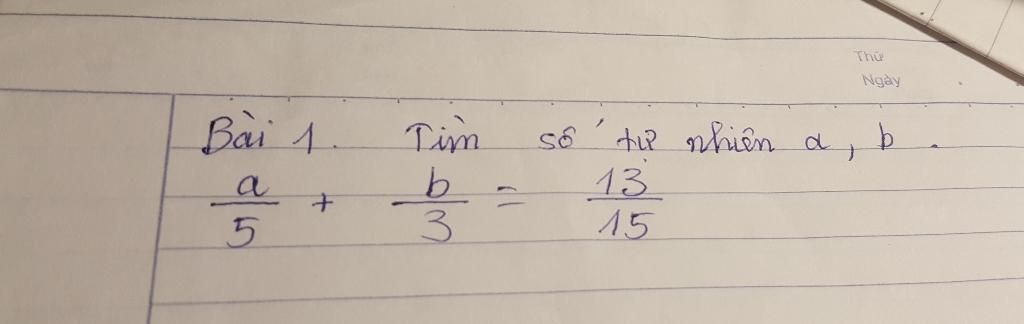 Thứ
Ngày
Bài 1. Tìm số tự nhiên a, b.
a/5 + b/3 = 13/15